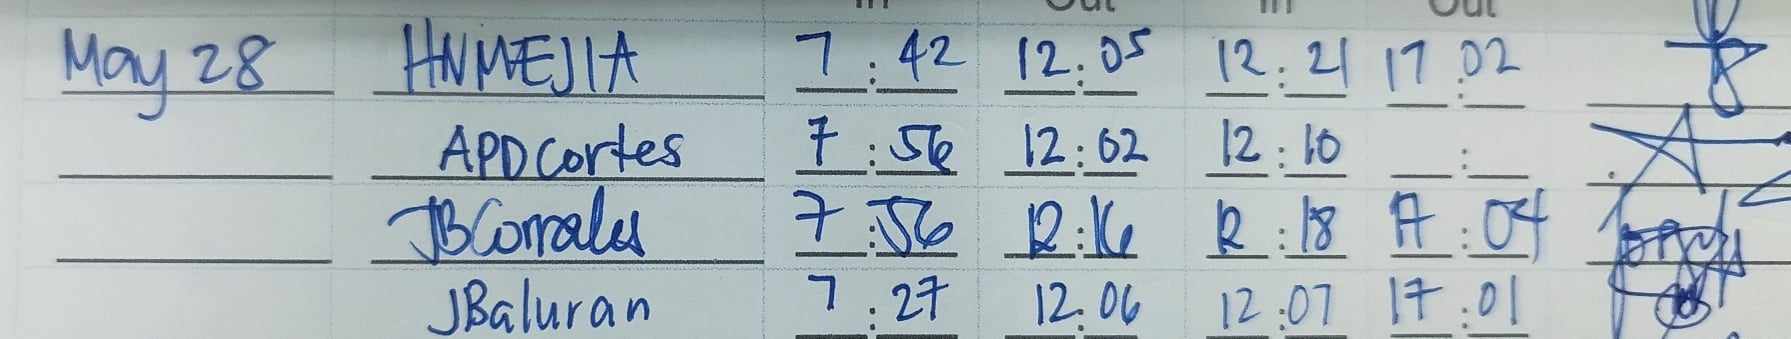 In Out In Out
May 28 HNMEJIA 7:42 12:05 12:21 17:02
APDCortes 7:56 12:02 12:10 :
JBCorrales 7:56 12:16 12:18 17:04
JBaluran 7:27 12:06 12:07 17:01